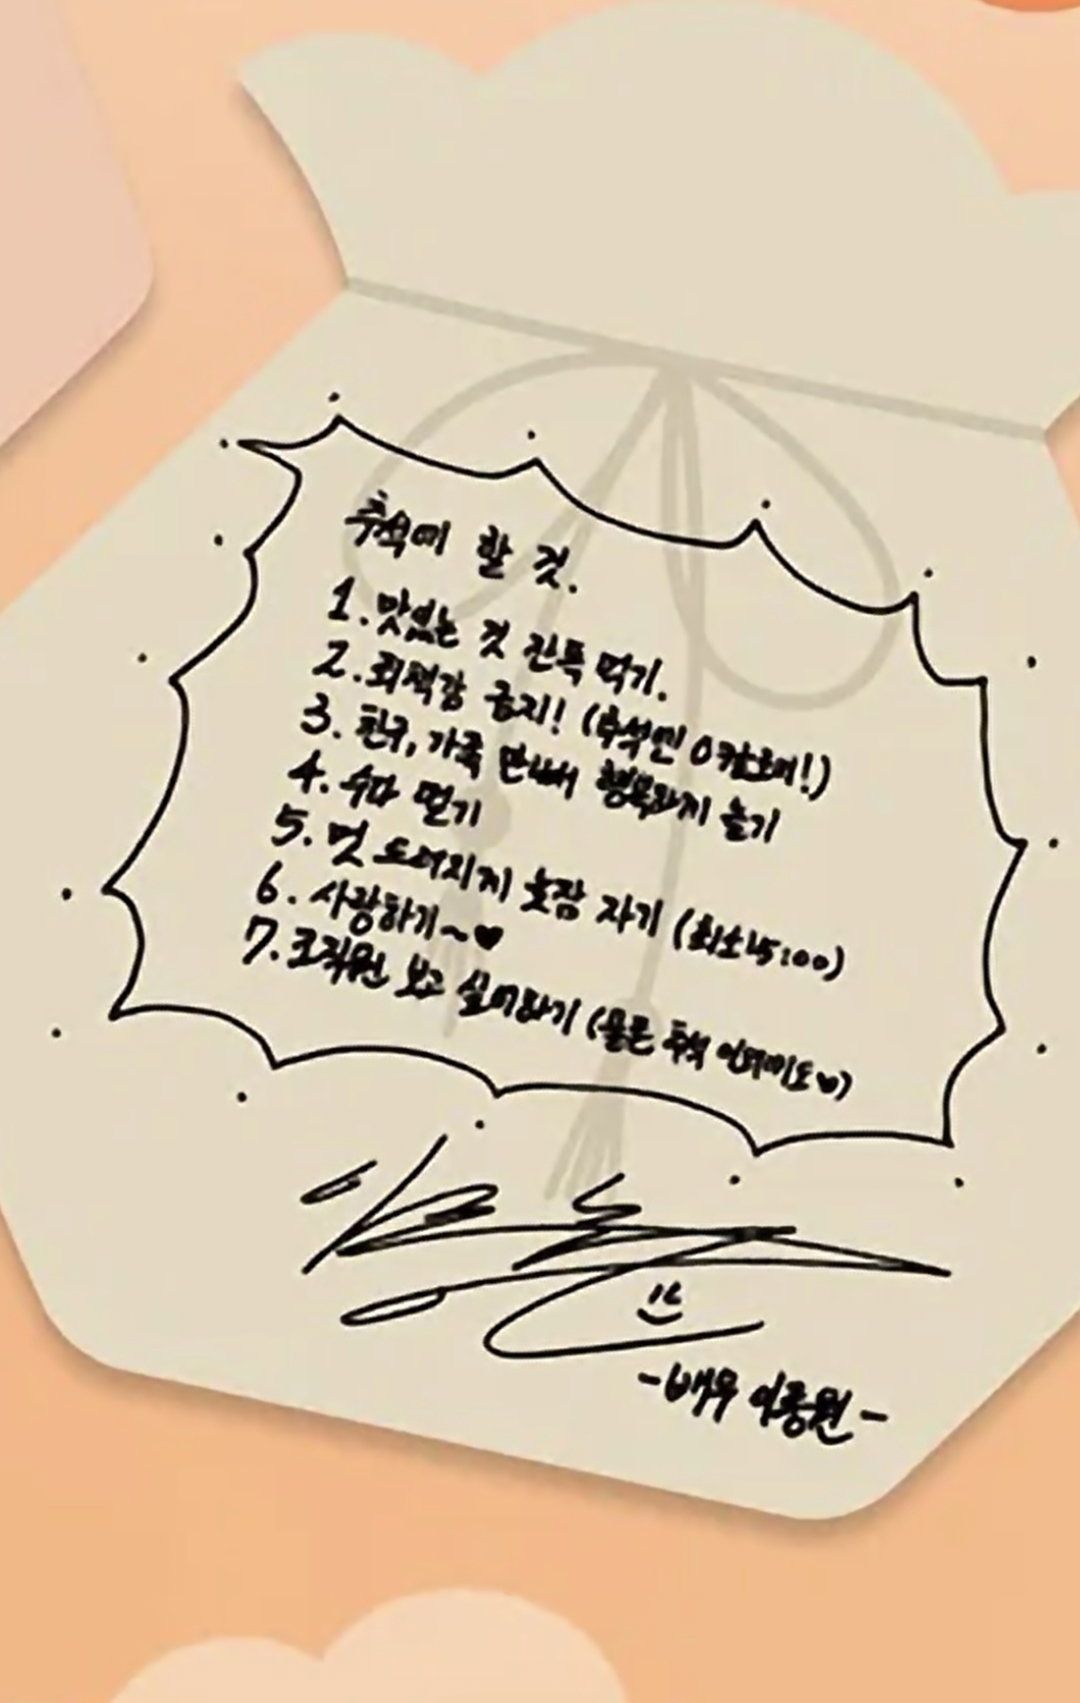 추석에 할 것.
1. 맛있는 것 잔뜩 먹기.
2. 죄책감 금지! (추석엔 0칼로리!)
3. 친구, 가족 만나서 행복하게 놀기
4. 수다 떨기
5. 멋 드러지게 늦잠 자기 (최소 15:00)
6. 사랑하기~♥
7. 이종원 보고 싶어하기 (물론 추석 이외에도♥)
-배우 이종원-